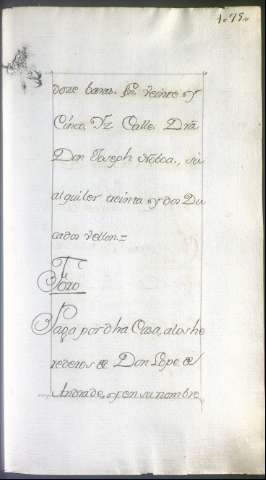 1095
doze baras. fdo veinte y
Cinco, Yz Calle, Dra
Don Joseph Noboa, su
alquiler treinta y dos Du
cados vellon=
Foro
Paga por dha Casa, alos he
rederos de Don Lope de
Andrade, y en su nombre